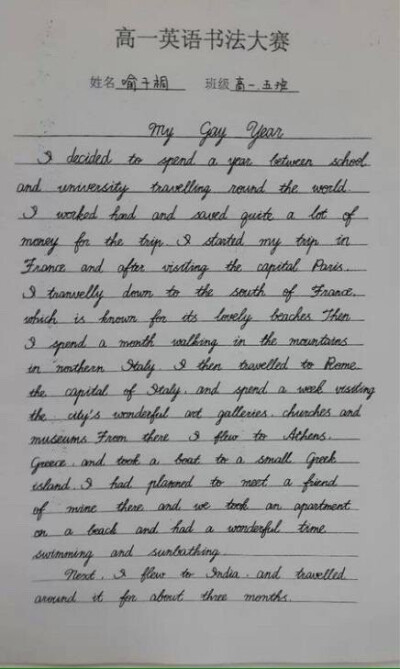 高一英语书法大赛
姓名 喻子桐 班级 高一.五班
My Gay Year
I decided to spend a year between school
and university travelling round the world.
I worked hard and saved quite a lot of
money for the trip. I started my trip in
France and after visiting the capital Paris.
I tranvelly down to the south of France.
which is known for its lovely beaches Then
I spend a month walking in the mountains
in northern Italy. I then travelled to Rome
the capital of Italy. and spend a week visiting
the city's wonderful art galleries. churches and
museums From there I flew to Athens.
Greece. and took a boat to a small Greek
island. I had planned to meet a friend
of mine there and we took an apartment
on a beach and had a wonderful time
swimming and sunbathing.
Next. I flew to India. and travelled
around it for about three months.